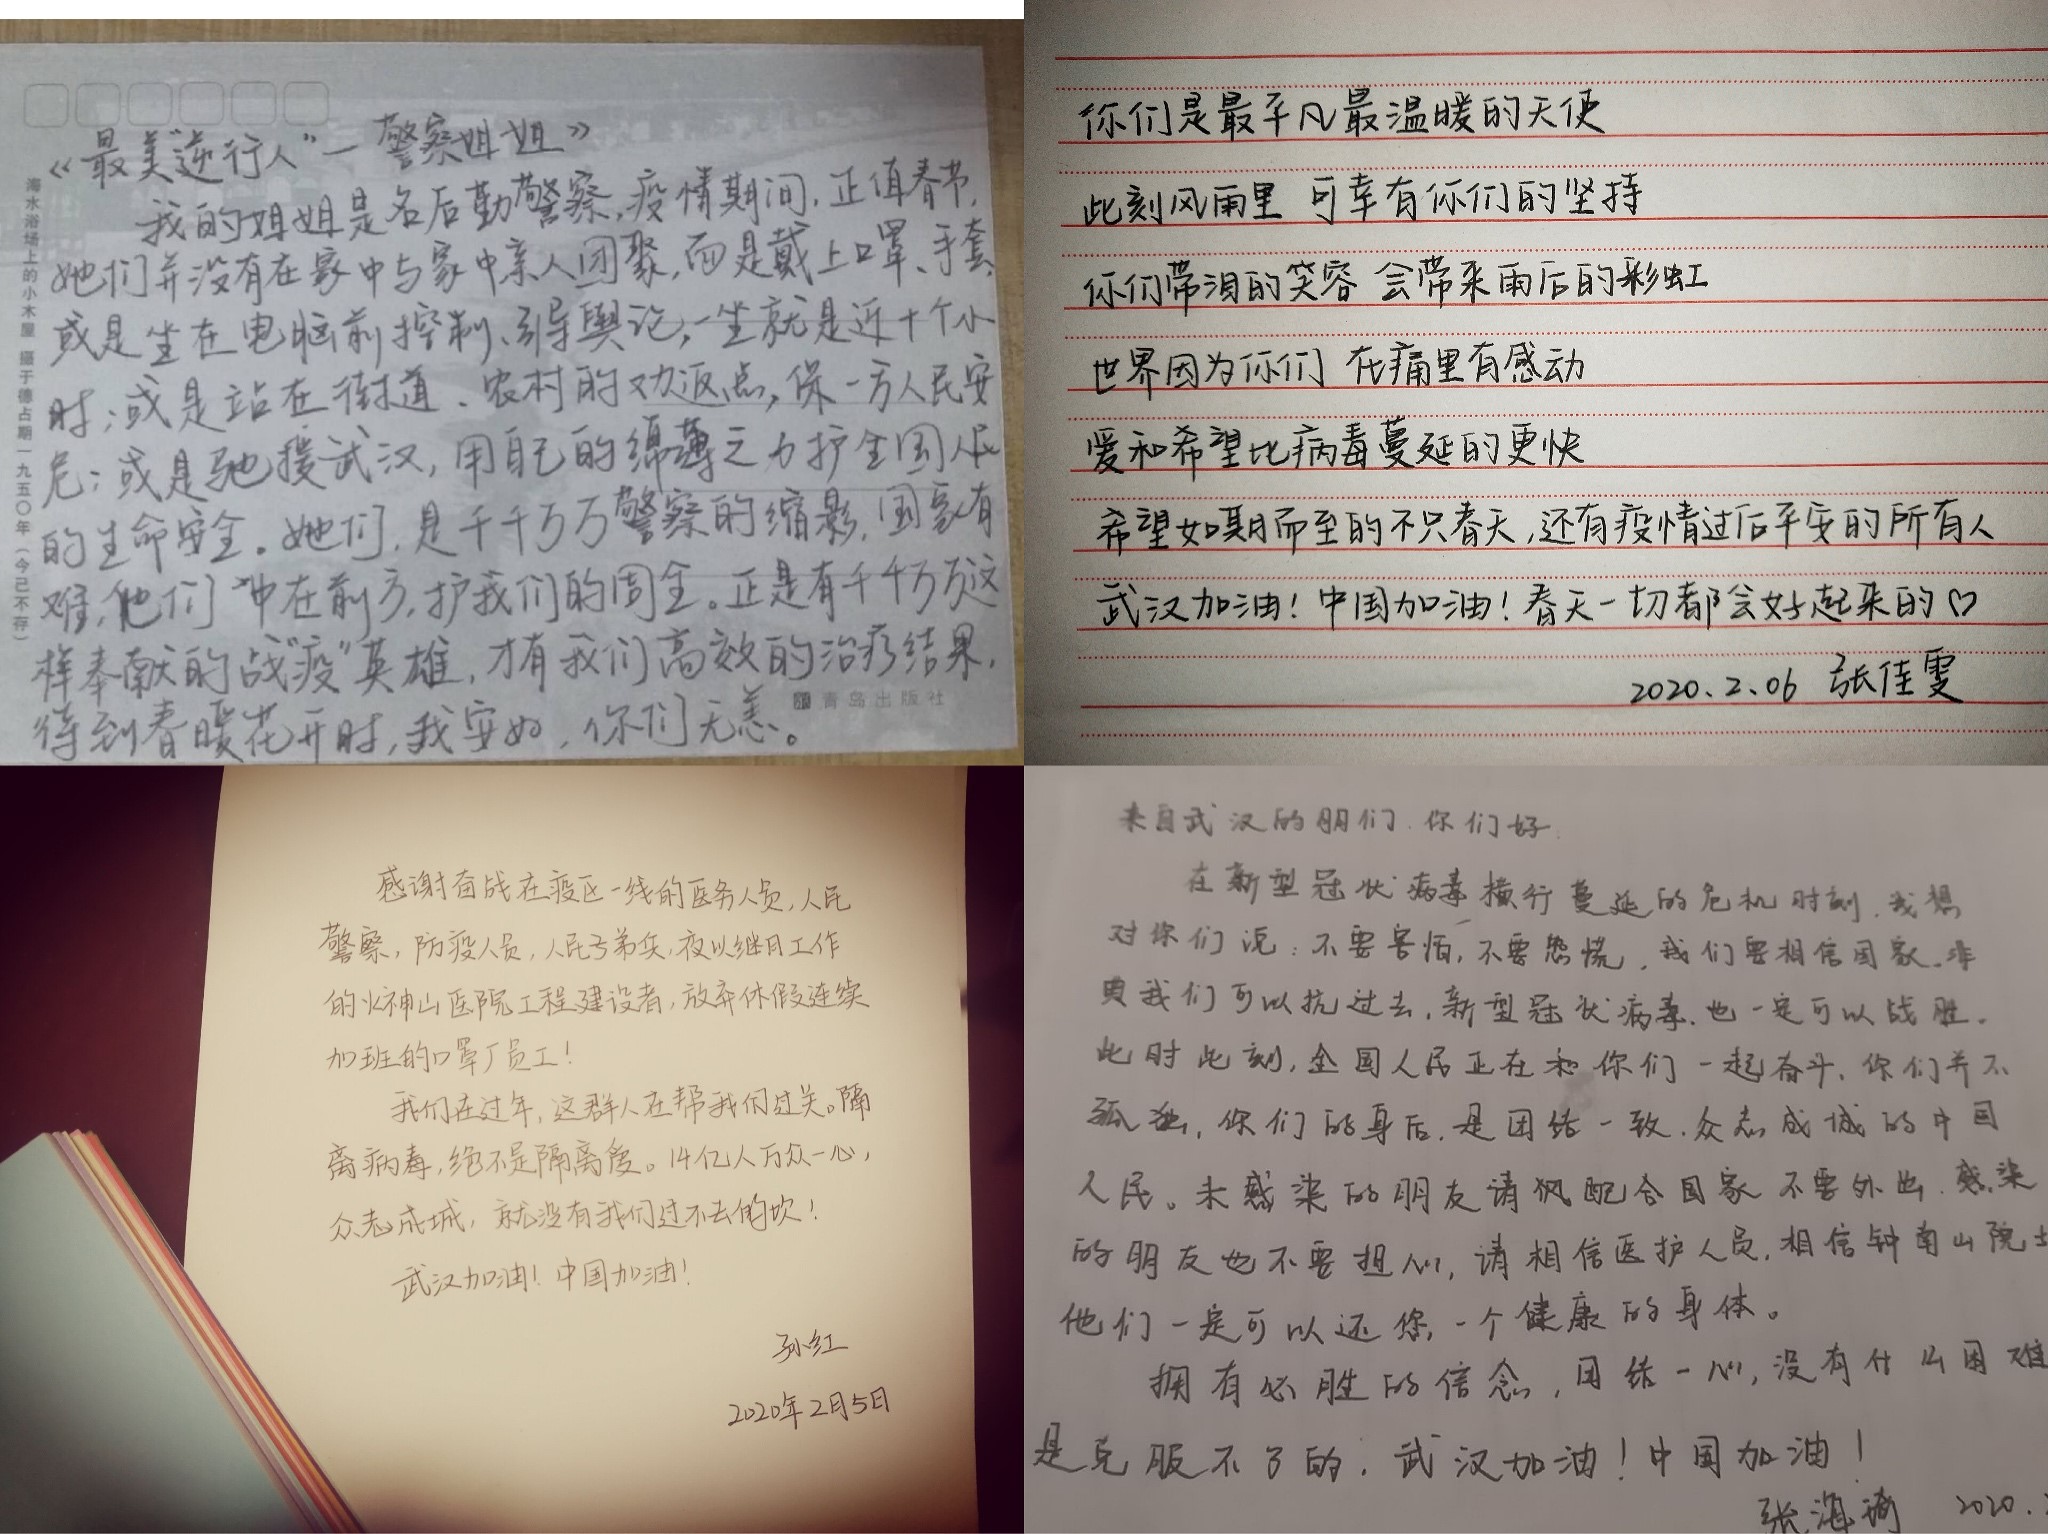 《最美“逆行人”一警察姐姐》
我的姐姐是名后勤警察,疫情期间,正值春节,
她们并没有在家中与家中亲人团聚,而是戴上口罩、手套,
或是坐在电脑前控制、引导舆论,一坐就是近十个小
时;或是站在街道、农村的劝返点,保一方人民安
危;或是驰援武汉,用自己的绵薄之力护全国人民
的生命安全。她们,是千千万万警察的缩影,国家有
难,他们冲在前方,护我们的周全。正是有千千万万这
样奉献的战“疫”英雄,才有我们高效的治疗结果,
待到春暖花开时,我安好,你们无恙。
海水浴场上的小木屋 摄于德占期一九五〇年(今已不存)
青岛出版社
你们是最平凡最温暖的天使
此刻风雨里 可幸有你们的坚持
你们带泪的笑容 会带来雨后的彩虹
世界因为你们 在痛里有感动
爱和希望比病毒蔓延的更快
希望如期而至的不只春天,还有疫情过后平安的所有人
武汉加油!中国加油!春天一切都会好起来的♡
2020.2.06 张佳雯
感谢奋战在疫区一线的医务人员,人民
警察,防疫人员,人民子弟兵,夜以继日工作
的火神山医院工程建设者,放弃休假连续
加班的口罩厂员工!
我们在过年,这群人在帮我们过关。隔
离病毒,绝不是隔离爱。14亿人万众一心,
众志成城,就没有我们过不去的坎!
武汉加油!中国加油!
孙红
2020年2月5日
来自武汉的朋们.你们好.
在新型冠状病毒横行蔓延的危机时刻,我想
对你们说:不要害怕,不要恐慌,我们要相信国家.非
典我们可以抗过去,新型冠状病毒.也一定可以战胜.
此时此刻,全国人民正在和你们一起奋斗,你们并不
孤独,你们的身后,是团结一致.众志成城的中国
人民。未感染的朋友请配合国家不要外出.感染
的朋友也不要担心,请相信医护人员,相信钟南山院士
他们一定可以还您一个健康的身体。
拥有必胜的信念,团结一心,没有什么困难
是克服不了的.武汉加油!中国加油!
张海琦 2020.